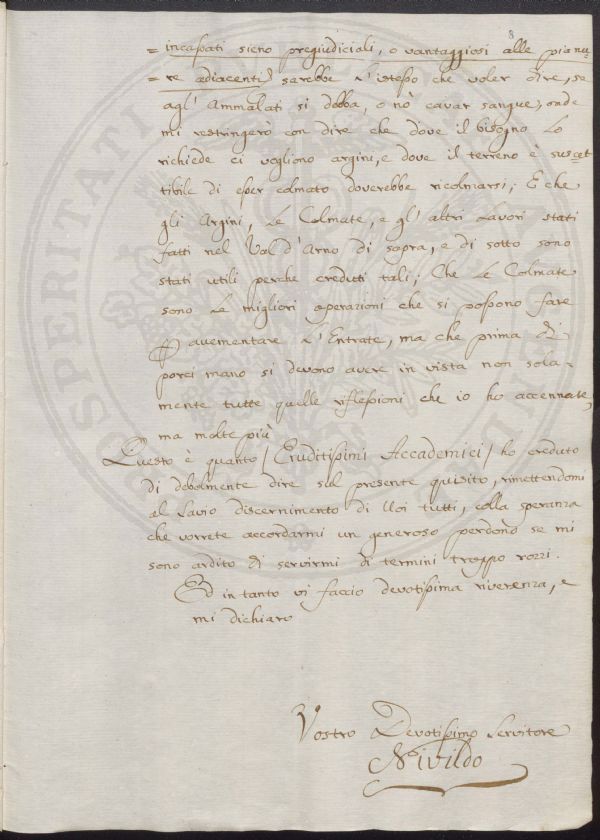 8
= incassati sieno pregiudiciali, o vantaggiosi alle pianu=
= re adiacenti) sarebbe l'istesso che voler dire, se
agl' Ammalati si dobba, o nò cavar sangue; onde
mi restringerò con dire che dove il bisogno lo
richiede ci vogliono argini, e dove il terreno è suscet
tibile di esser colmato doverebbe ricolmarsi; E che
gli Argini, le Colmate, e gl' altri Lavori stati
fatti nel Val d'Arno di sopra, e di sotto sono
stati utili perche creduti tali; Che le Colmate
sono le migliori operazioni che si possono fare
P aumentare l'Entrate, ma che prima di
porci mano si devono avere in vista non sola=
mente tutte quelle riflessioni che io ho accennate,
ma molte più
Questo è quanto (Eruditissimi Accademici) ho creduto
di debolmente dire sul presente quisito, rimettendomi
al savio discernimento di Voi tutti, colla speranza
che vorrete accordarmi un generoso perdono se mi
sono ardito di servirmi di termini troppo rozzi.
Ed intanto vi faccio devotissima riverenza, e
mi dichiaro
Vostro Devotissimo Servitore
Nivildo